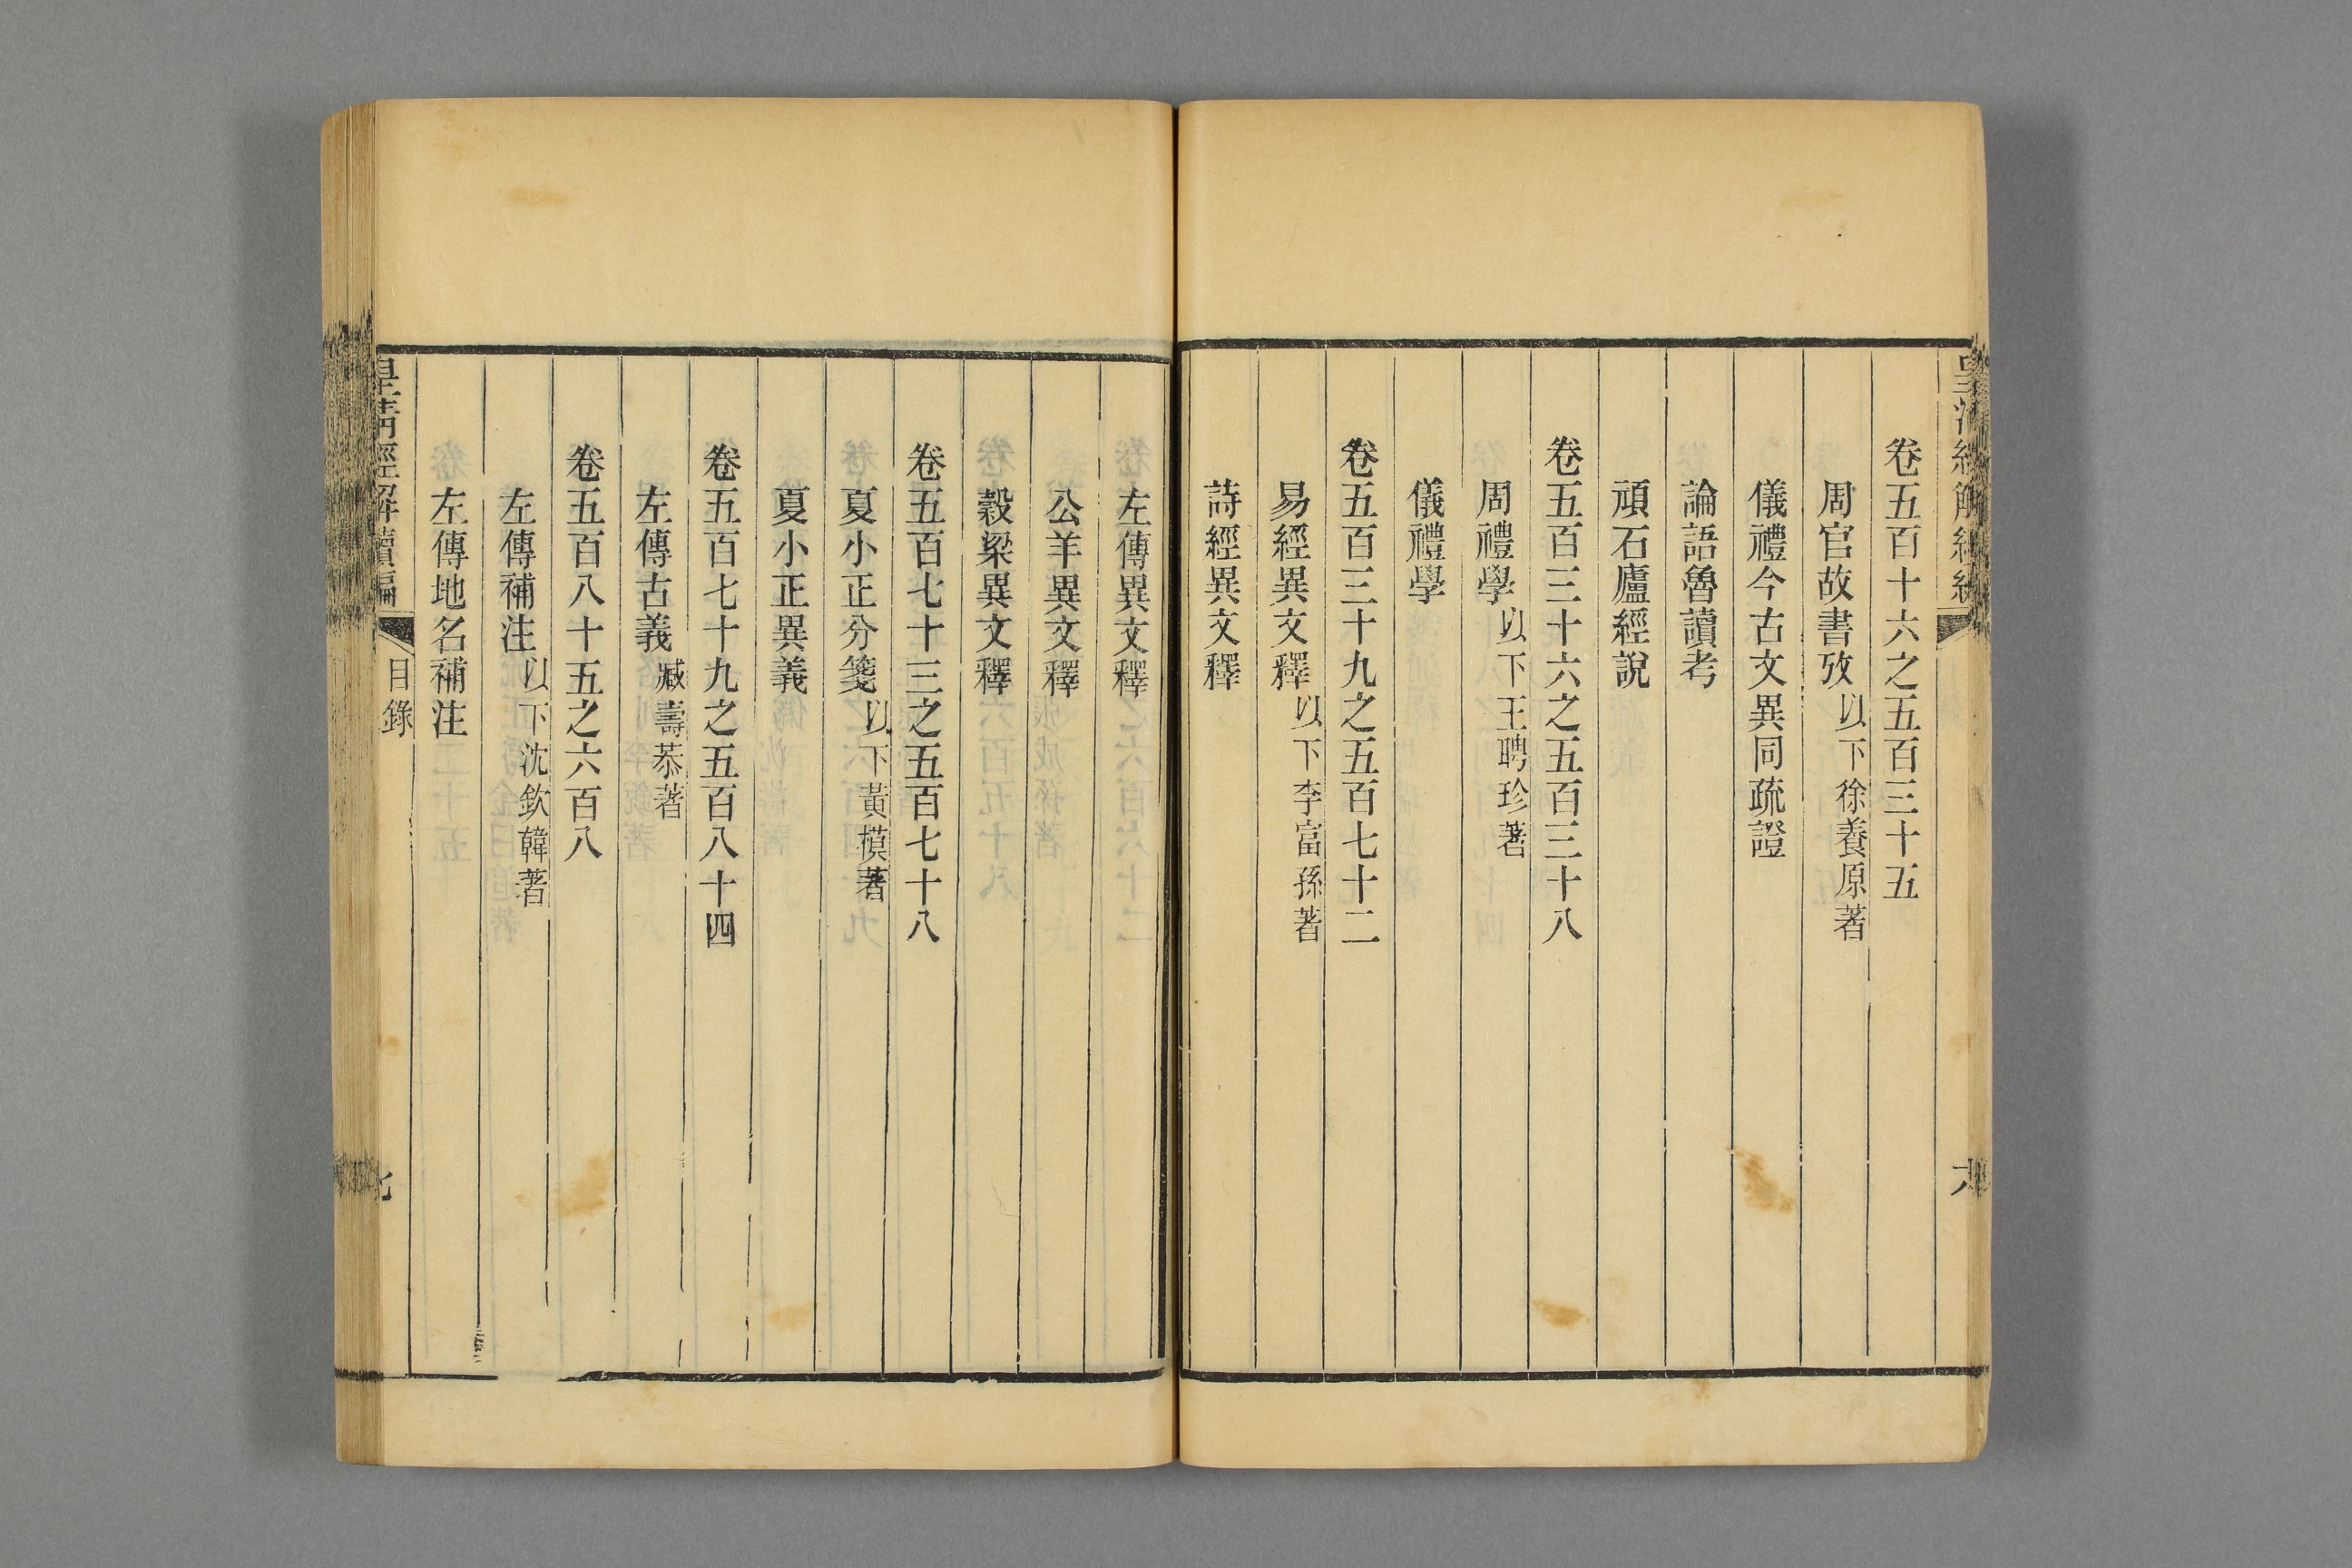 卷五百十六之五百三十五
周官故書攷以下徐養原著
儀禮今古文異同疏證
論語魯讀考
頑石廬經說
卷五百三十六之五百三十八
周禮學以下王聘珍著
儀禮學
卷五百三十九之五百七十二
易經異文釋以下李富孫著
詩經異文釋
左傳異文釋
公羊異文釋
穀梁異文釋
卷五百七十三之五百七十八
夏小正分箋以下黃模著
夏小正異義
卷五百七十九之五百八十四
左傳古義臧壽恭著
卷五百八十五之六百八
左傳補注以下沈欽韓著
左傳地名補注
皇清經解續編
目錄